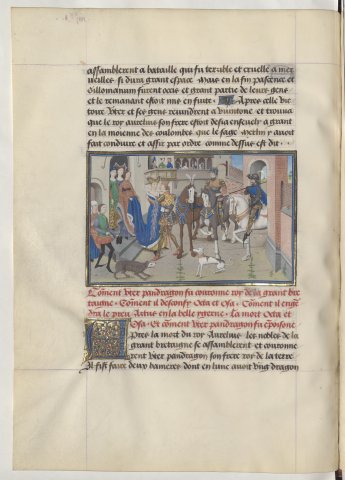 assamblerent a bataille qui fu terrible et cruelle a mer
ueilles si dura grant espace Mais en la fin pascence et
Gillomanium furent occis et grant partie de leurs gens
et le remanant estoit mis en fuite. Apres celle vic
toire Vter et ses gens reuindrent a vintone et trouua
que le roy aurelius son frere estoit desia enseuely a grant
en la moienne des coulombes que le sage merlin y auoit
fait conduire et assir par ordre comme dessus est dit
Comment vter pandragon fu couronne roy de la grant bre
taigne. Coment il desconfy Octa et Osa. Coment il engen
dra le preu Artus en la belle ygerne. La mort Octa et
Osa. Et coment vter pandragon fu empoisone
Apres la mort du roy Aurelius les nobles de la
grant bretaigne se assamblerent et couronne
rent vter pandragon son frere roy de la terre
Il fist faire deux banieres dont en lune auoit vng dragon